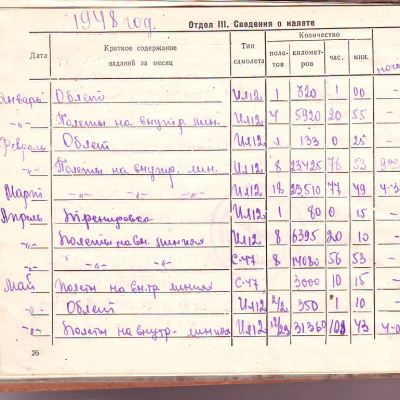 1948 год.
Отдел III. Сведения о налете
Дата Краткое содержание заданий за месяц Тип самолета Количество полетов километров час. мин.
Январь Облет Ил12 1 320 1 00
-"- Полеты на внутр. лин. Ил12 5920 20 55
Февраль Облет Ил12 1 133 0 25
-"- Полеты на внутр. лин. Ил12 8 23425 76 53
Март -"- -"- -"- Ил12 18 23510 77 49
Апрель Тренировка Ил12 1 80 0 15
-"- Полеты на вн. линиях Ил12 8 6395 20 10
-"- -"- С-47 8 14080 56 53
Май Полеты на вн.тр. линиях С-47 3000 10 15
-"- Облет Ил12 2/2 350 1 10
-"- Полеты на внутр. линиях Ил12 31360 108 43
26